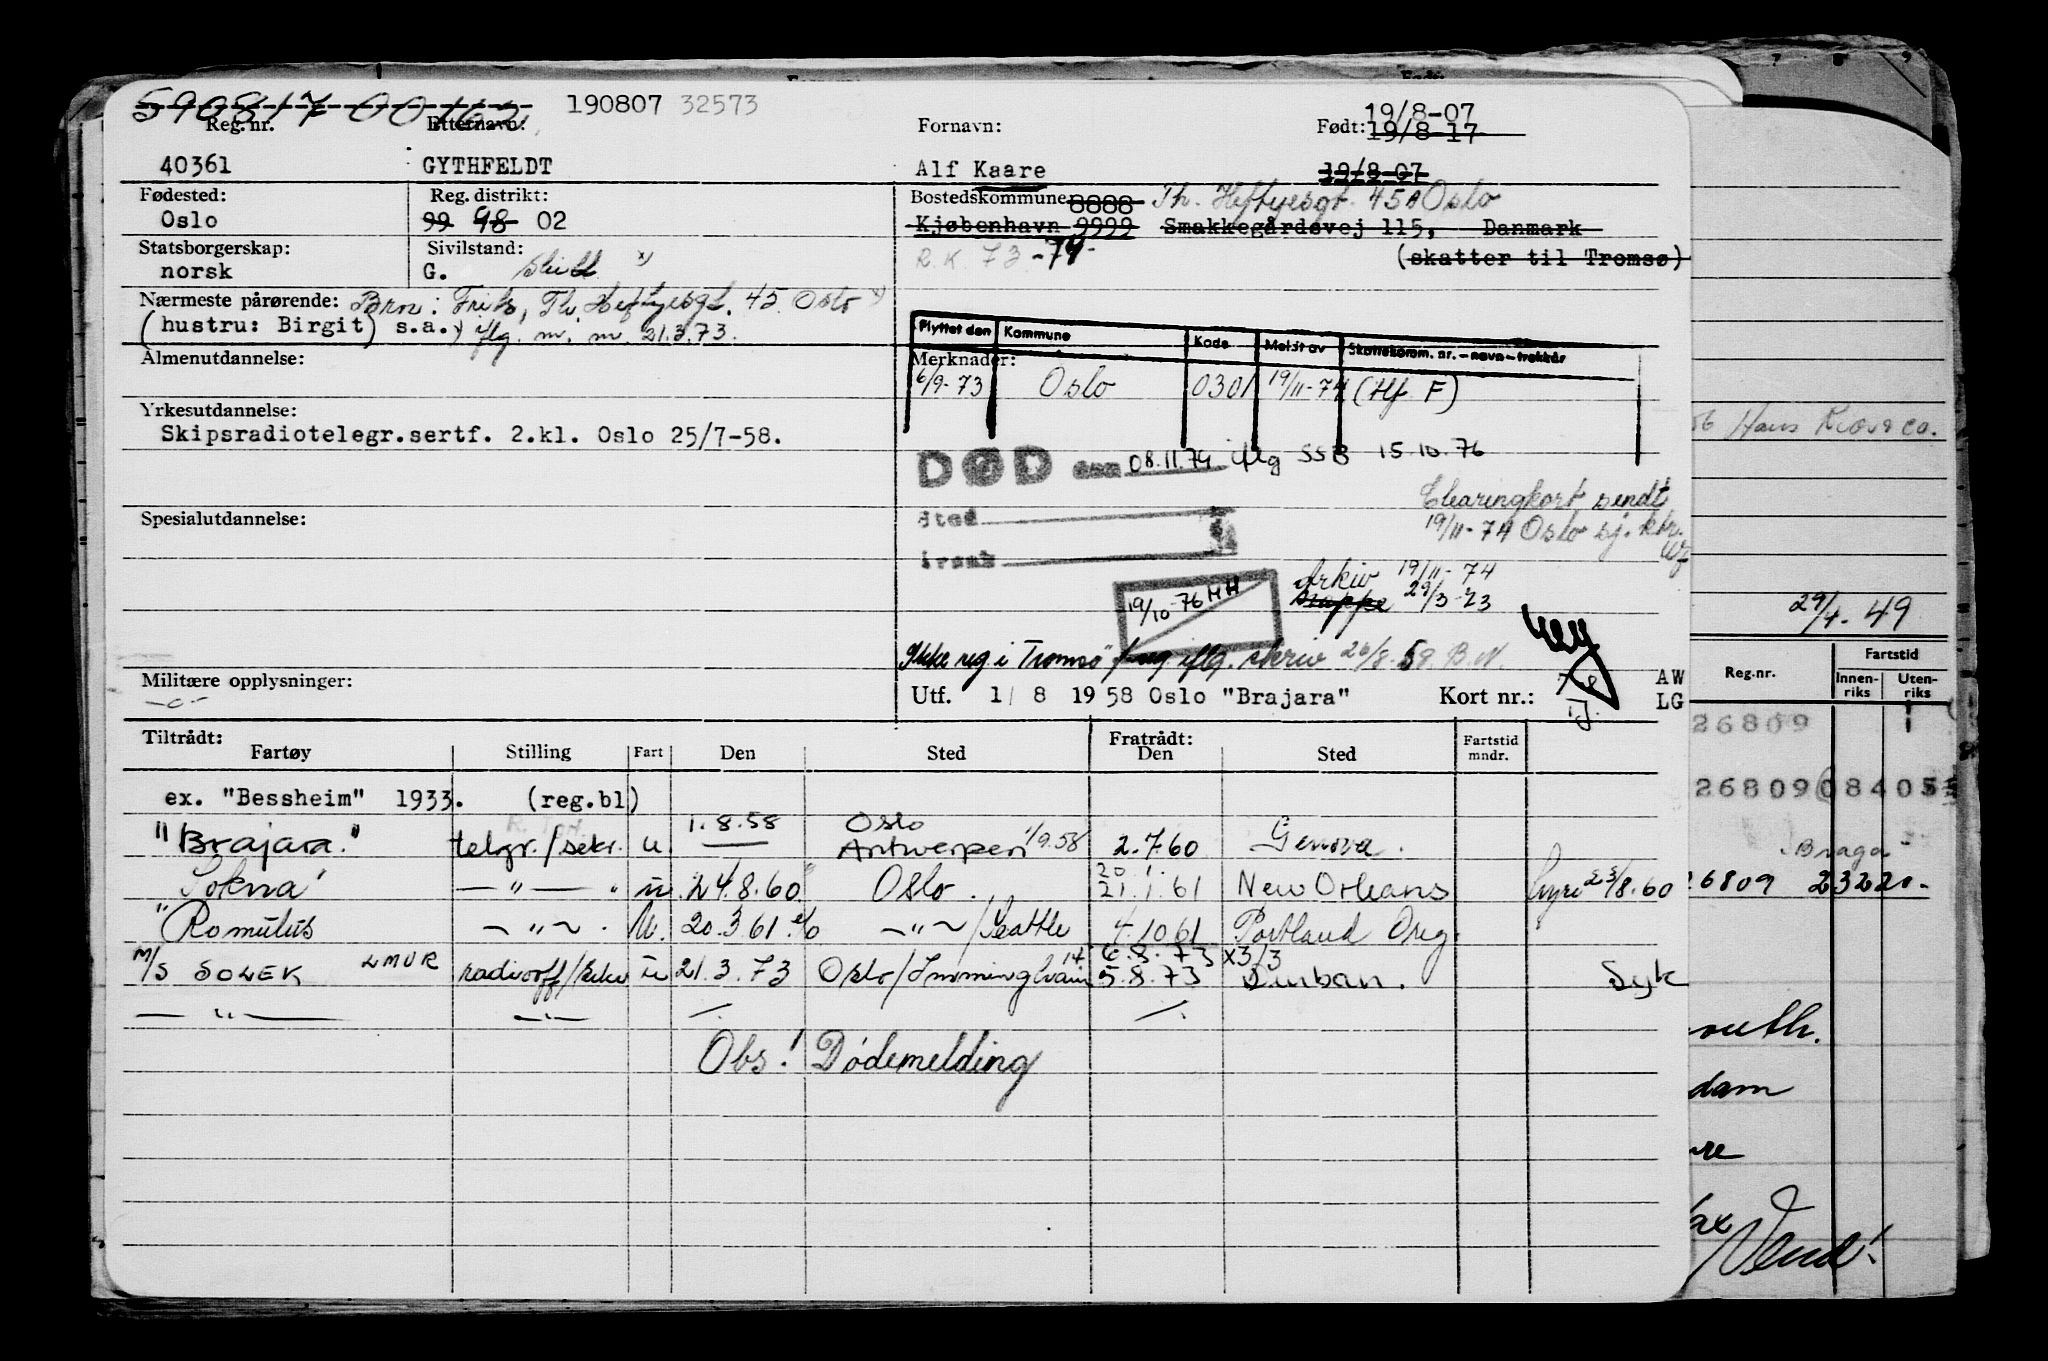 590817 00162 190807 32573
Reg.nr. Etternavn: Fornavn: Født: 19/8-07
19/8-17
40361 GYTHFELDT Alf Kaare 19/8-07
Fødested: Reg. distrikt: Bostedskommune: 8888 Th. Heftyesgt. 45A Oslo
Oslo 99 98 02 Kjøbenhavn 9999 Smakkegårdsvej 115, Danmark
Statsborgerskap: Sivilstand: R.K. 73 -74- (skatter til Tromsø)
norsk G. x)
Nærmeste pårørende: Bror: Frits, Th. Heftyesgt. 45 Oslo x)
(hustru: Birgit) s.a. iflg. m. m. 21.3.73.
Flyttet den Kommune Kode Meldt av Skattekomm. nr. - navn - trekkår
Almenutdannelse: Merknader:
6/9-73 Oslo 0301 19/11-74 (Hf F)
Yrkesutdannelse:
Skipsradiotelegr.sertf. 2.kl. Oslo 25/7-58.
DØD den 08.11.74 iflg SSB 15.10.76
Clearingkort sendt
19/11-74 Oslo sj. ktr.
Spesialutdannelse:
Sted
Årsak
Arkiv 19/11-74
19/10-76 HH Mappe 29/3-73
29/4.49
Ikke reg i Tromsø iflg. skriv 26/8.58. B.N.
Militære opplysninger:
Utf. 1/ 8 1958 Oslo "Brajara" Kort nr.: AW
LG
Reg.nr. Fartstid
Innenriks Utenriks
Tiltrådt: Fratrådt:
Fartøy Stilling Fart Den Sted Den Sted Fartstid mndr.
26809
ex. "Bessheim" 1933. (reg.bl) 26809 08405
"Brajara" telgr./sekr. u. 1.8.58 Oslo
Antwerpen 1/9.58 2.7.60 Genova. "Braga"
"Sokna" — " — u 24.8.60 Oslo. 20.1.
21.1.61 New Orleans Hyre 23/8.60 26809 23220.-
"Romulus — " — . U. 20.3 61. — " — /Seattle 4.10 61 Portland Oreg.
M/S SOLEK LMUR radiooff/sekr u 21.3.73 Oslo/Immingham 14 6.8.73 x3/3
5.8.73 Durban. Syk
— " — — " — /. /.
Obs! Dødemelding
Vend!